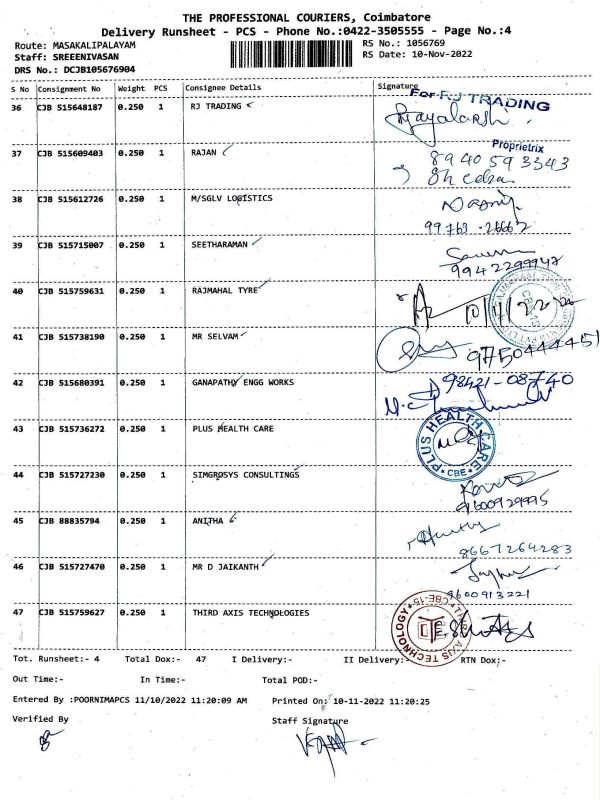 THE PROFESSIONAL COURIERS, Coimbatore
Delivery Runsheet - PCS - Phone No.:0422-3505555 - Page No.:4
Route: MASAKALIPALAYAM RS No.: 1056769
Staff: SREEENIVASAN RS Date: 10-Nov-2022
DRS No.: DCJCB105676904
S No Consignment No Weight PCS Consignee Details Signature
36 CJB 515648187 0.250 1 RJ TRADING For RJ TRADING
Proprietrix
37 CJB 515609403 0.250 1 RAJAN 8940593343
38 CJB 515612726 0.250 1 M/SGLV LOGISTICS
99763-26662
39 CJB 515715007 0.250 1 SEETHARAMAN
9942299947
40 CJB 515759631 0.250 1 RAJMAHAL TYRE 10/11/22
41 CJB 515738190 0.250 1 MR SELVAM 9750444451
42 CJB 515680391 0.250 1 GANAPATHY ENGG WORKS 98421-08740
43 CJB 515736272 0.250 1 PLUS HEALTH CARE PLUS HEALTH CARE CBE
44 CJB 515727230 0.250 1 SIMGROSYS CONSULTINGS
9600929995
45 CJB 88835794 0.250 1 ANITHA
8667264283
46 CJB 515727470 0.250 1 MR D JAIKANTH
9600913221
47 CJB 515759627 0.250 1 THIRD AXIS TECHNOLOGIES THIRD AXIS TECHNOLOGY CBE-15
Tot. Runsheet:- 4 Total Dox:- 47 I Delivery:- II Delivery:- RTN Dox:-
Out Time:- In Time:- Total POD:-
Entered By :POORNIMAPCS 11/10/2022 11:20:09 AM Printed On: 10-11-2022 11:20:25
Verified By Staff Signature